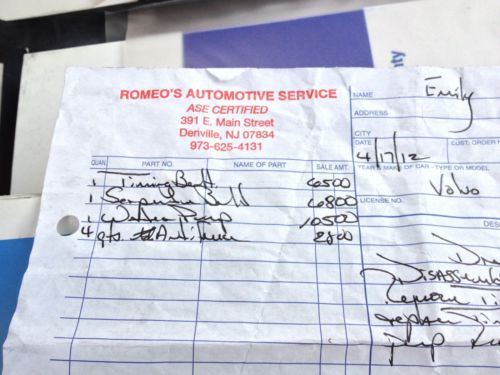 ROMEO'S AUTOMOTIVE SERVICE
ASE CERTIFIED
391 E. Main Street
Denville, NJ 07834
973-625-4131
NAME Emily
ADDRESS
CITY
DATE 4/17/12 CUST. ORDER N
YEAR / MAKE OF CAR - TYPE OR MODEL
Volvo
LICENSE NO.
QUAN. PART NO. NAME OF PART SALE AMT.
1 Timing Belt 6500
1 Serpentine Belt 6800
1 Water Pump 10500
4 qts Antifreeze 2800
DES
Disassemb